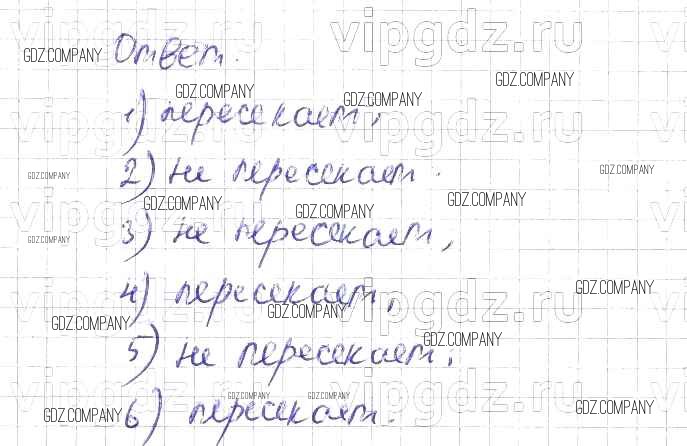 vipgdz.ru
Ответ.
GDZ.COMPANY
GDZ.COMPANY
GDZ.COMPANY GDZ.COMPANY
1) пересекает;
vipgdz.ru vipgdz.ru
2) не пересекает.
GDZ.COMPANY GDZ.COMPANY
GDZ.COMPANY GDZ.COMPANY GDZ.COMPANY
vipgdz.ru vipgdz.ru
3) не пересекает,
GDZ.COMPANY
4) пересекает,
GDZ.COMPANY
vipgdz.ru
GDZ.COMPANY GDZ.COMPANY
GDZ.COMPANY
5) не пересекает;
GDZ.COMPANY GDZ.COMPANY
vipgdz.ru vipgdz.ru
6) пересекает.
GDZ.COMPANY GDZ.COMPANY